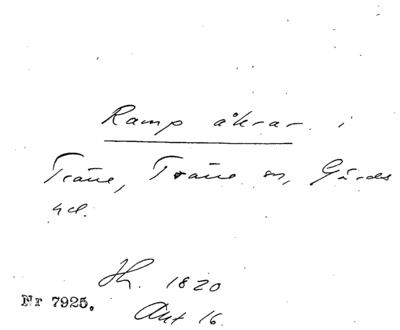 Ramp åkrar i
Träne, Träne sn, Gärds
hd.
Sk. 1820
Akt 16.
Nr 7925.